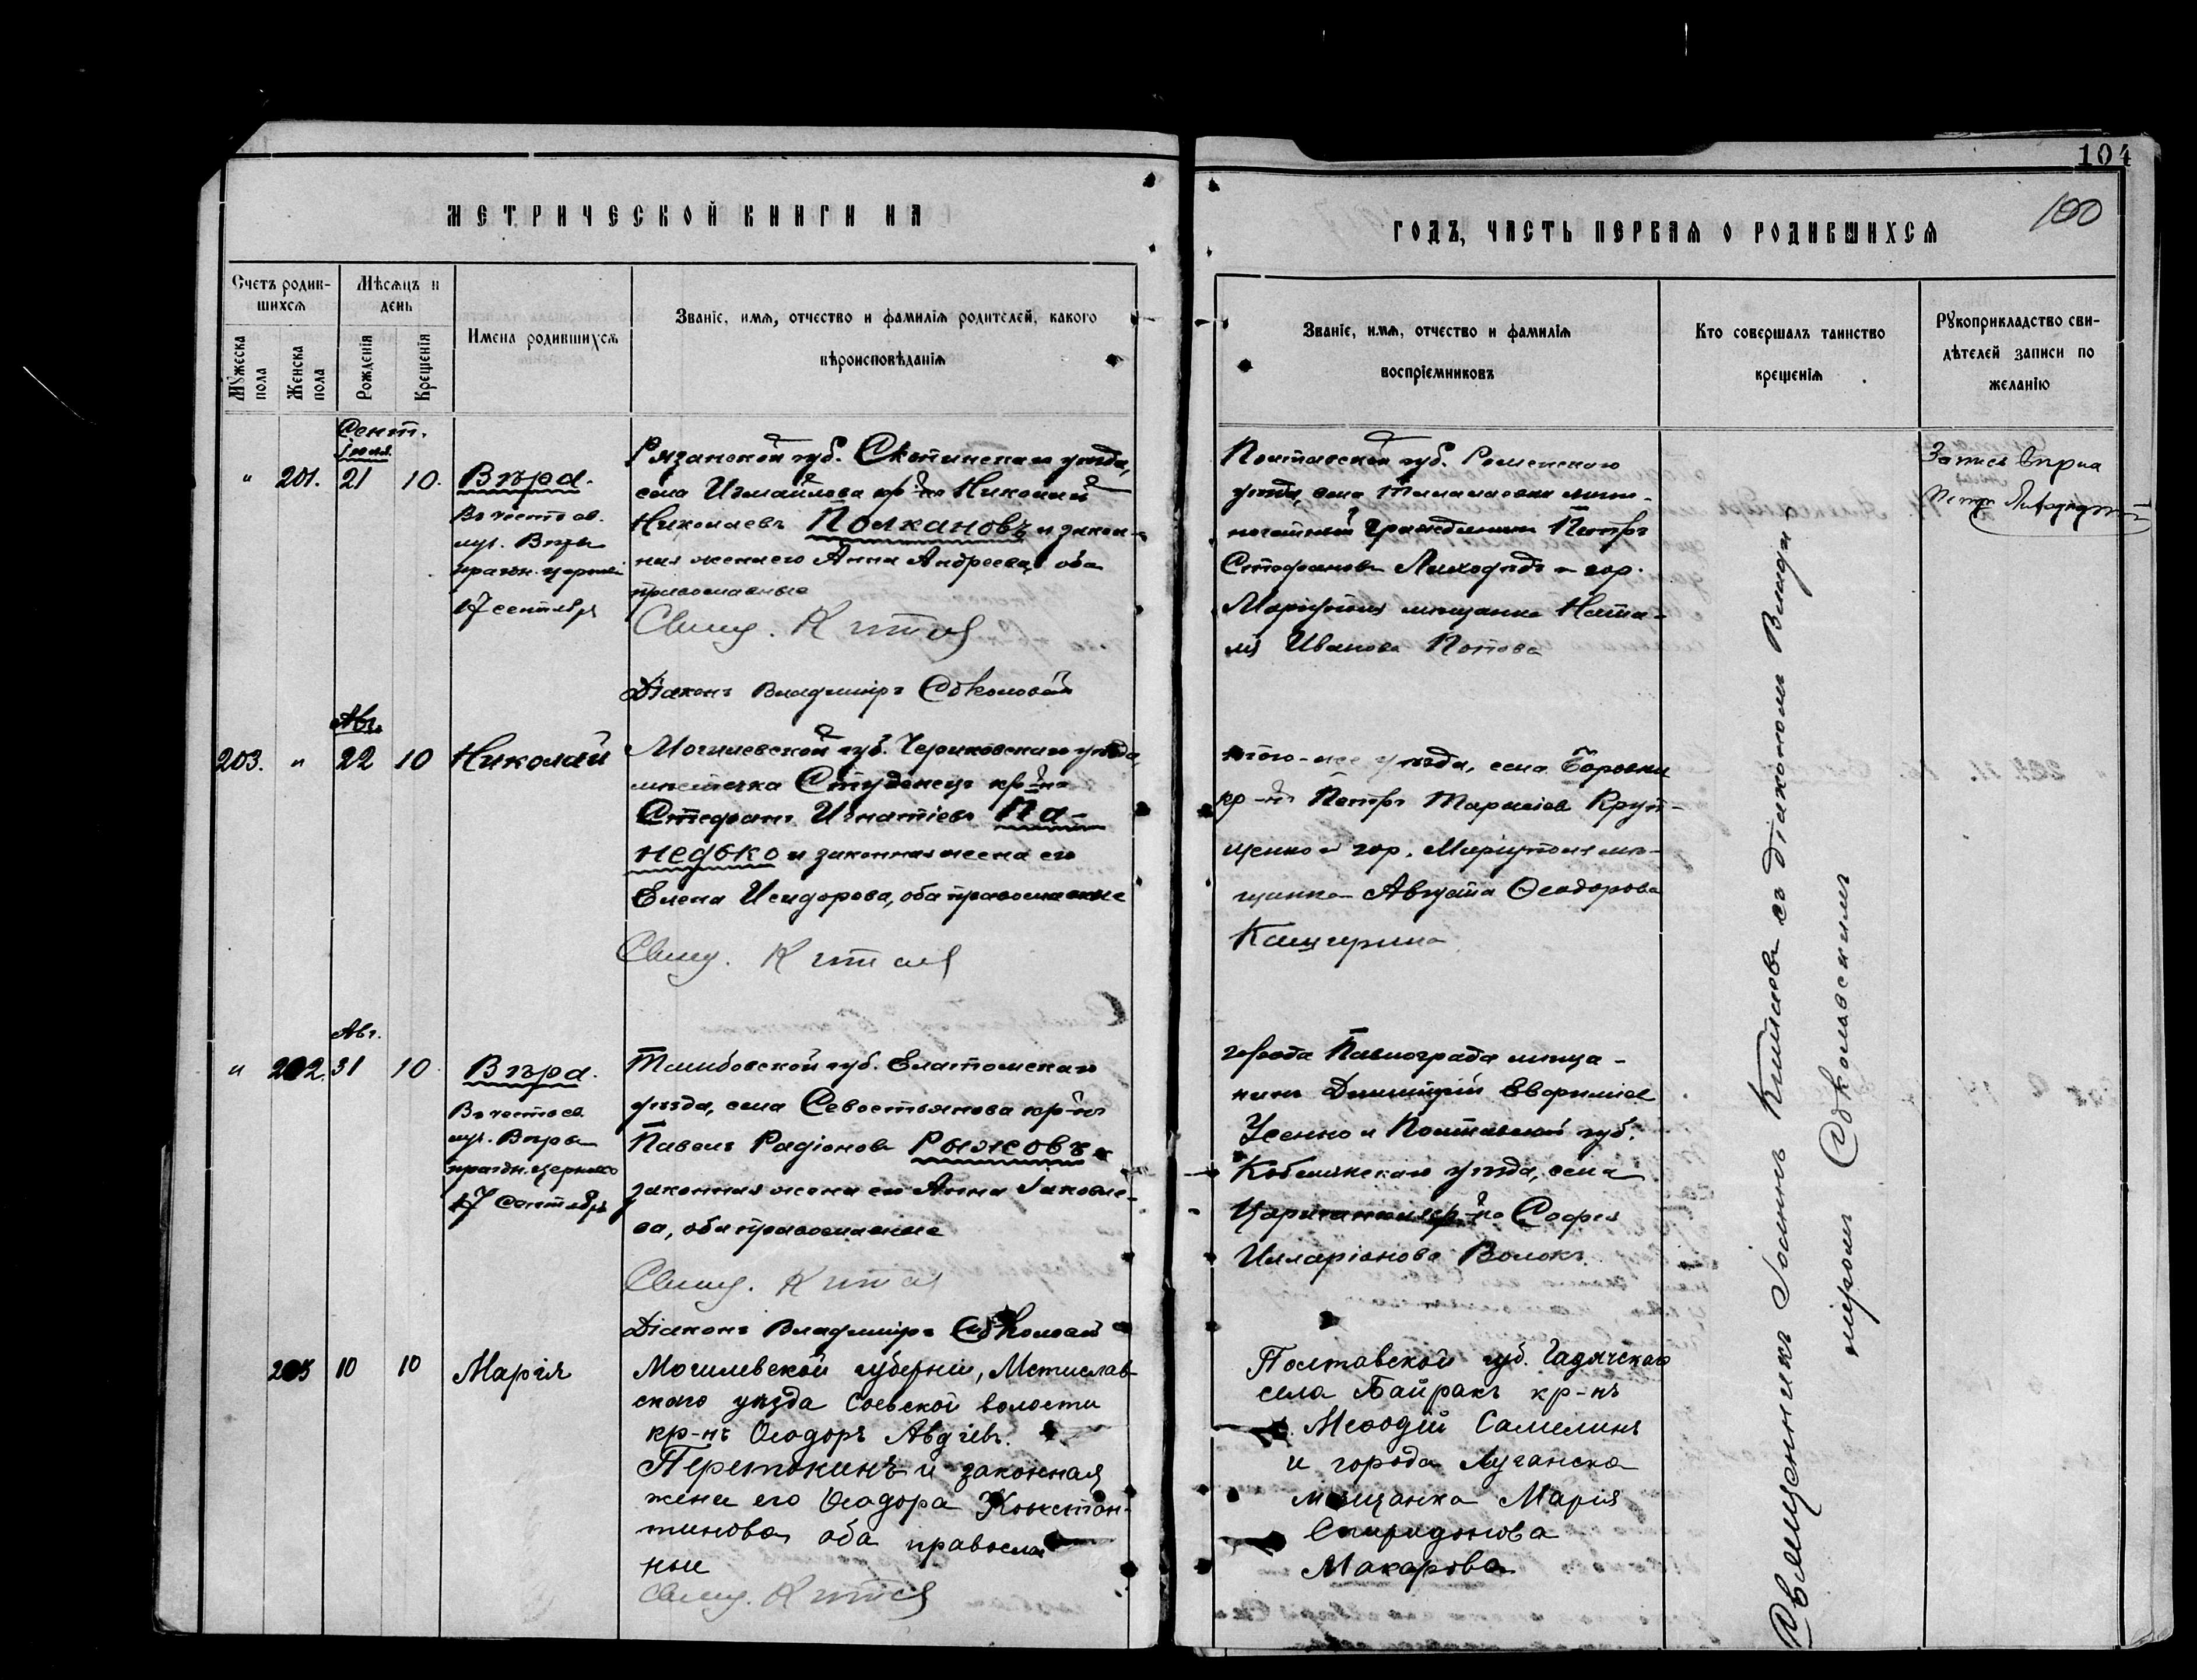 104
100
МЕТРИЧЕСКОЙ КНИГИ НА
ГОДЪ, ЧАСТЬ ПЕРВАЯ О РОДИВШИХСЯ
Счетъ родив-
шихся
Мужеска
пола
Женска
пола
Мѣсяцъ и
день
Рожденія
Крещенія
Имена родившихся
Званіе, имя, отчество и фамилія родителей, какого
вѣроисповѣданія
Званіе, имя, отчество и фамилія
воспріемниковъ
Кто совершалъ таинство
крещенія
Рукоприкладство сви-
дѣтелей записи по
желанію
Сент.
Іюля
" 201. 21 10.
Вѣра.
Въ честь св.
муч. Вѣры
празн. церков
17 сентябр
Рязанской губ. Скопинскаго уѣзда,
села Измайлова кр-нъ Николай
Николаевъ Полкановъ и закон-
ная жена его Анна Андреева, оба
православные
Свящ. Китаев
Діаконъ Владиміръ Соколовскій
Полтавской губ. Роменскаго
уѣзда, села
почетный гражданинъ Петръ
Стефановъ и гор.
Маріуполя мѣщанка Ната-
лія Иванова Попова
Петръ
Авг.
203. " 22 10
Николай
Могилевской губ. Чериковскаго уѣзда
мѣстечка Студенецъ кр-нъ
Стефанъ Игнатіевъ Па-
недько и законная жена его
Елена Исидорова, оба православные
Свящ. Китаев
того-же уѣзда, села Боровки
кр-нъ Петръ Тарасіев Круп-
щенко и гор. Маріуполя мѣ-
щанка Августа Ѳеодорова
Авг.
" 202. 31 10
Вѣра.
Въ честь св
муч. Вѣры
праздн. церков
17 Сентябрь
Тамбовской губ. Елатомскаго
уѣзда, села Севостьянова кр-нъ
Павелъ Радіонов Рыжовъ и
законная жена его Анна Іаковле-
ва, оба православные
Свящ. Китаев
Діаконъ Владиміръ Соколовскій
города Павлограда мѣща-
нинъ Димитрій Евфиміев
Усенко и Полтавской губ.
Кобелякскаго уѣзда, села
Царичанки кр-ка Софія
Илларіонова Волокъ.
205 10 10
Марія
Могилевской губерніи, Мстислав-
скаго уѣзда Соевской волости
кр-нъ Ѳеодоръ Авдіевъ.
Перепокинъ и законная
жена его Ѳеодора Констан-
тинова, оба православ
ные
Свящ. Китаев
Полтавской губ. Гадячскаго
села Байракъ кр-нъ
Меѳодій Самелинъ
и города Луганска
мѣщанка Марія
Спиридонова
Макарова
Священникъ Іоаннъ Китаевъ съ діакономъ Влади-
міромъ Соколовскимъ